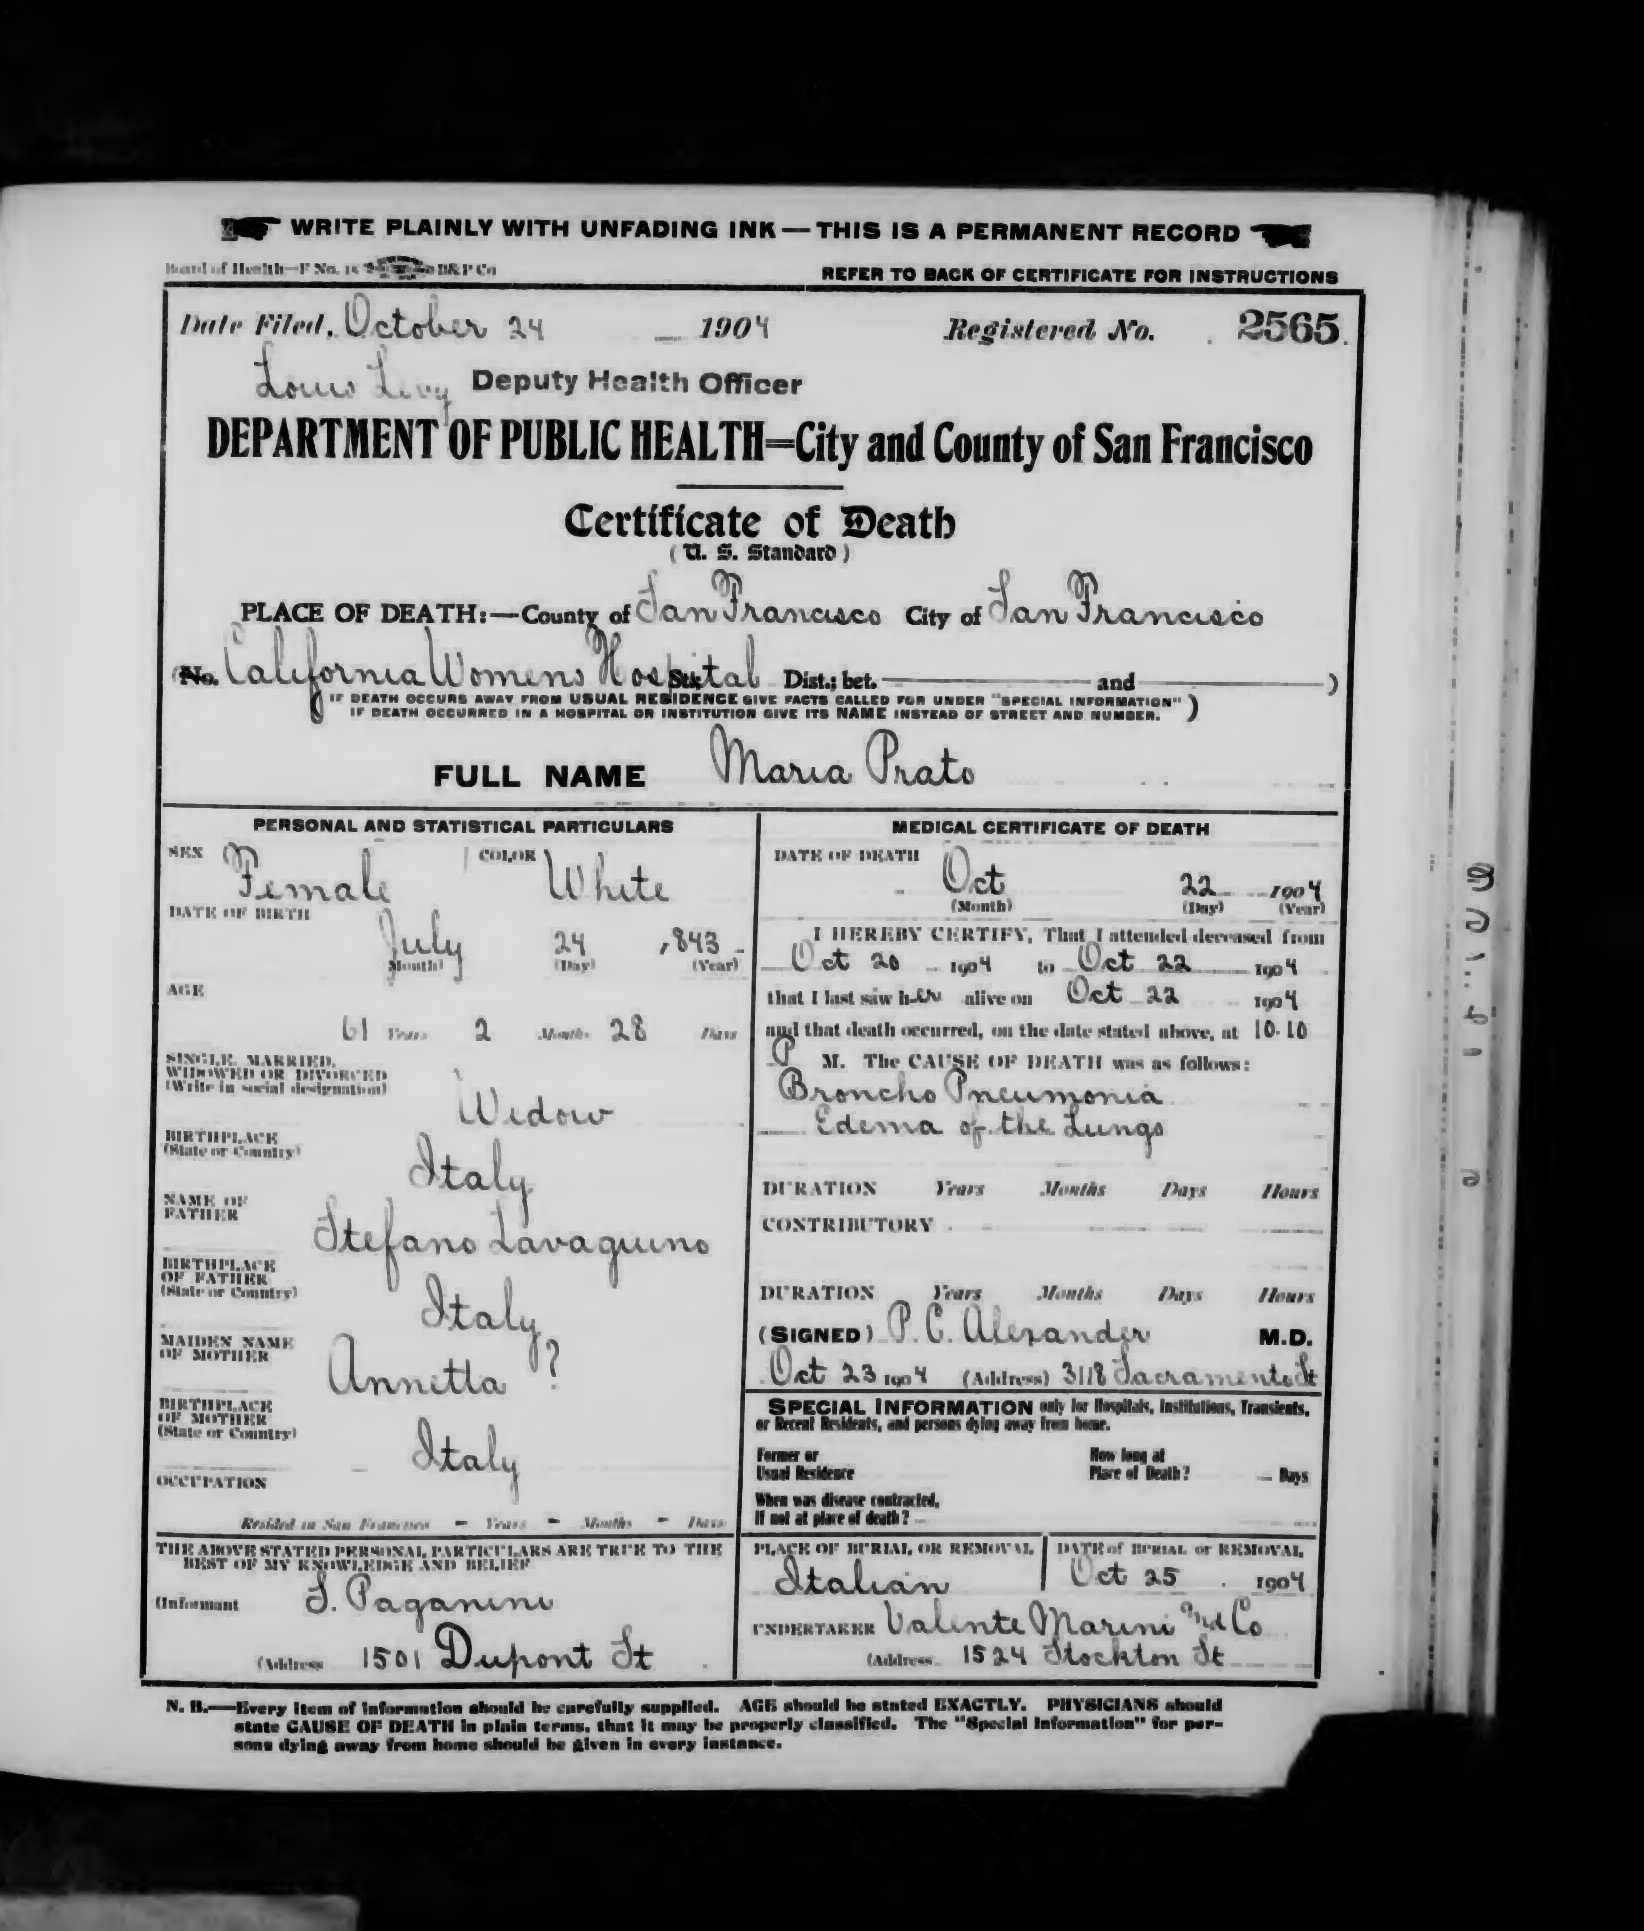 WRITE PLAINLY WITH UNFADING INK — THIS IS A PERMANENT RECORD
Board of Health—F No. 15 B&P Co
REFER TO BACK OF CERTIFICATE FOR INSTRUCTIONS
Date Filed, October 24 1904 Registered No. 2565
Louis Levy Deputy Health Officer
DEPARTMENT OF PUBLIC HEALTH=City and County of San Francisco
Certificate of Death
(U. S. Standard)
PLACE OF DEATH:—County of San Francisco City of San Francisco
(No. California Womens Hospital St.; Dist.; bet. and )
(IF DEATH OCCURS AWAY FROM USUAL RESIDENCE GIVE FACTS CALLED FOR UNDER "SPECIAL INFORMATION"
IF DEATH OCCURRED IN A HOSPITAL OR INSTITUTION GIVE ITS NAME INSTEAD OF STREET AND NUMBER.)
FULL NAME Maria Prato
PERSONAL AND STATISTICAL PARTICULARS
SEX Female COLOR White
DATE OF BIRTH
July 24 1843
(Month) (Day) (Year)
AGE
61 Years 2 Months 28 Days
SINGLE, MARRIED,
WIDOWED OR DIVORCED
(Write in social designation)
Widow
BIRTHPLACE
(State or Country)
Italy
NAME OF
FATHER
Stefano Lavaguino
BIRTHPLACE
OF FATHER
(State or Country)
Italy
MAIDEN NAME
OF MOTHER
Annetta ?
BIRTHPLACE
OF MOTHER
(State or Country)
Italy
OCCUPATION
Resided in San Francisco - Years - Months - Days
THE ABOVE STATED PERSONAL PARTICULARS ARE TRUE TO THE
BEST OF MY KNOWLEDGE AND BELIEF
(Informant S. Paganini
(Address 1501 Dupont St
MEDICAL CERTIFICATE OF DEATH
DATE OF DEATH
Oct 22 1904
(Month) (Day) (Year)
I HEREBY CERTIFY, That I attended deceased from
Oct 20 1904 to Oct 22 1904
that I last saw her alive on Oct 22 1904
and that death occurred, on the date stated above, at 10.10
P M. The CAUSE OF DEATH was as follows:
Broncho Pneumonia
Edema of the Lungs
DURATION Years Months Days Hours
CONTRIBUTORY
DURATION Years Months Days Hours
(SIGNED) P. C. Alexander M.D.
Oct 23 1904 (Address) 3118 Sacramento St
SPECIAL INFORMATION only for Hospitals, Institutions, Transients,
or Recent Residents, and persons dying away from home.
Former or
Usual Residence
How long at
Place of Death? Days
When was disease contracted,
If not at place of death?
PLACE OF BURIAL OR REMOVAL
Italian
DATE of BURIAL or REMOVAL
Oct 25 1904
UNDERTAKER Valente Marini and Co
(Address 1524 Stockton St
N. B.—Every item of information should be carefully supplied. AGE should be stated EXACTLY. PHYSICIANS should
state CAUSE OF DEATH in plain terms, that it may be properly classified. The "Special Information" for per-
sons dying away from home should be given in every instance.